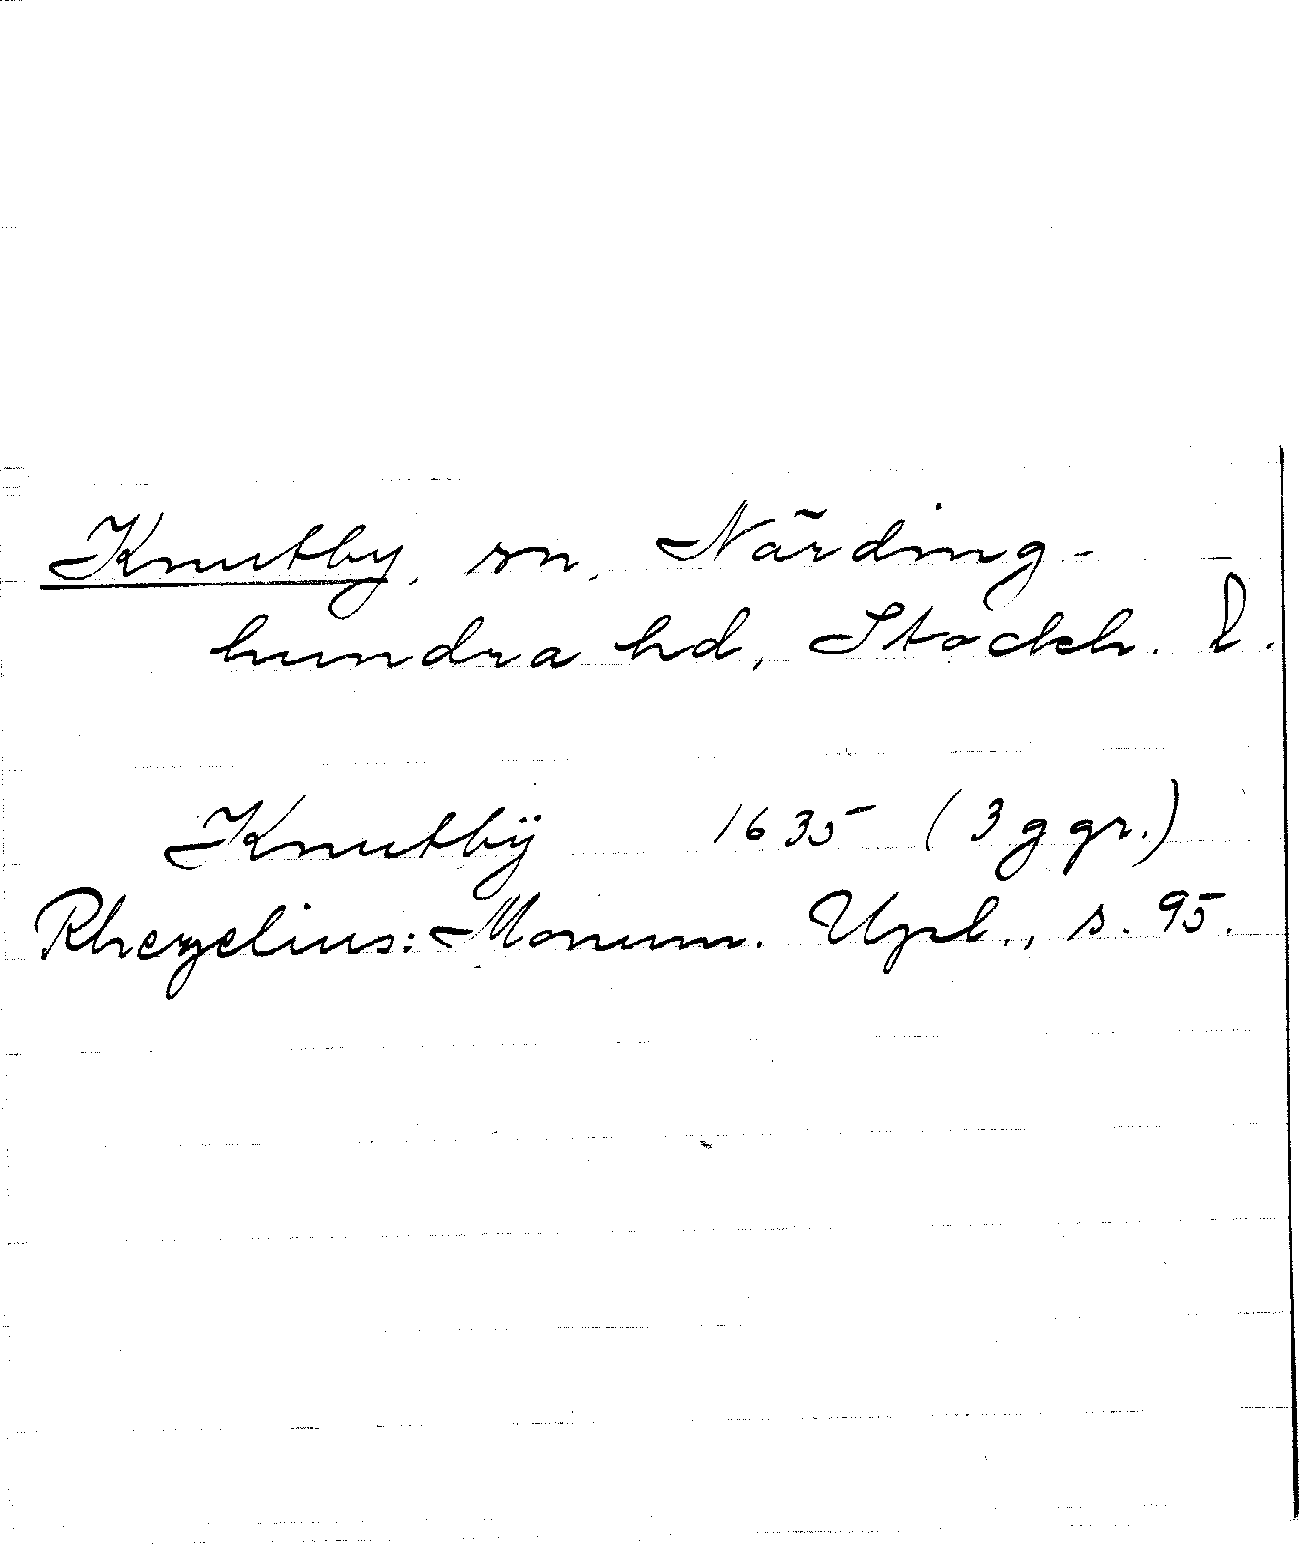 Knutby, sn, Närding-
hundra hd, Stockh. l.
Knutbÿ 1635 (3 ggr.)
Rhezelius: Monum. Upl., s. 95.